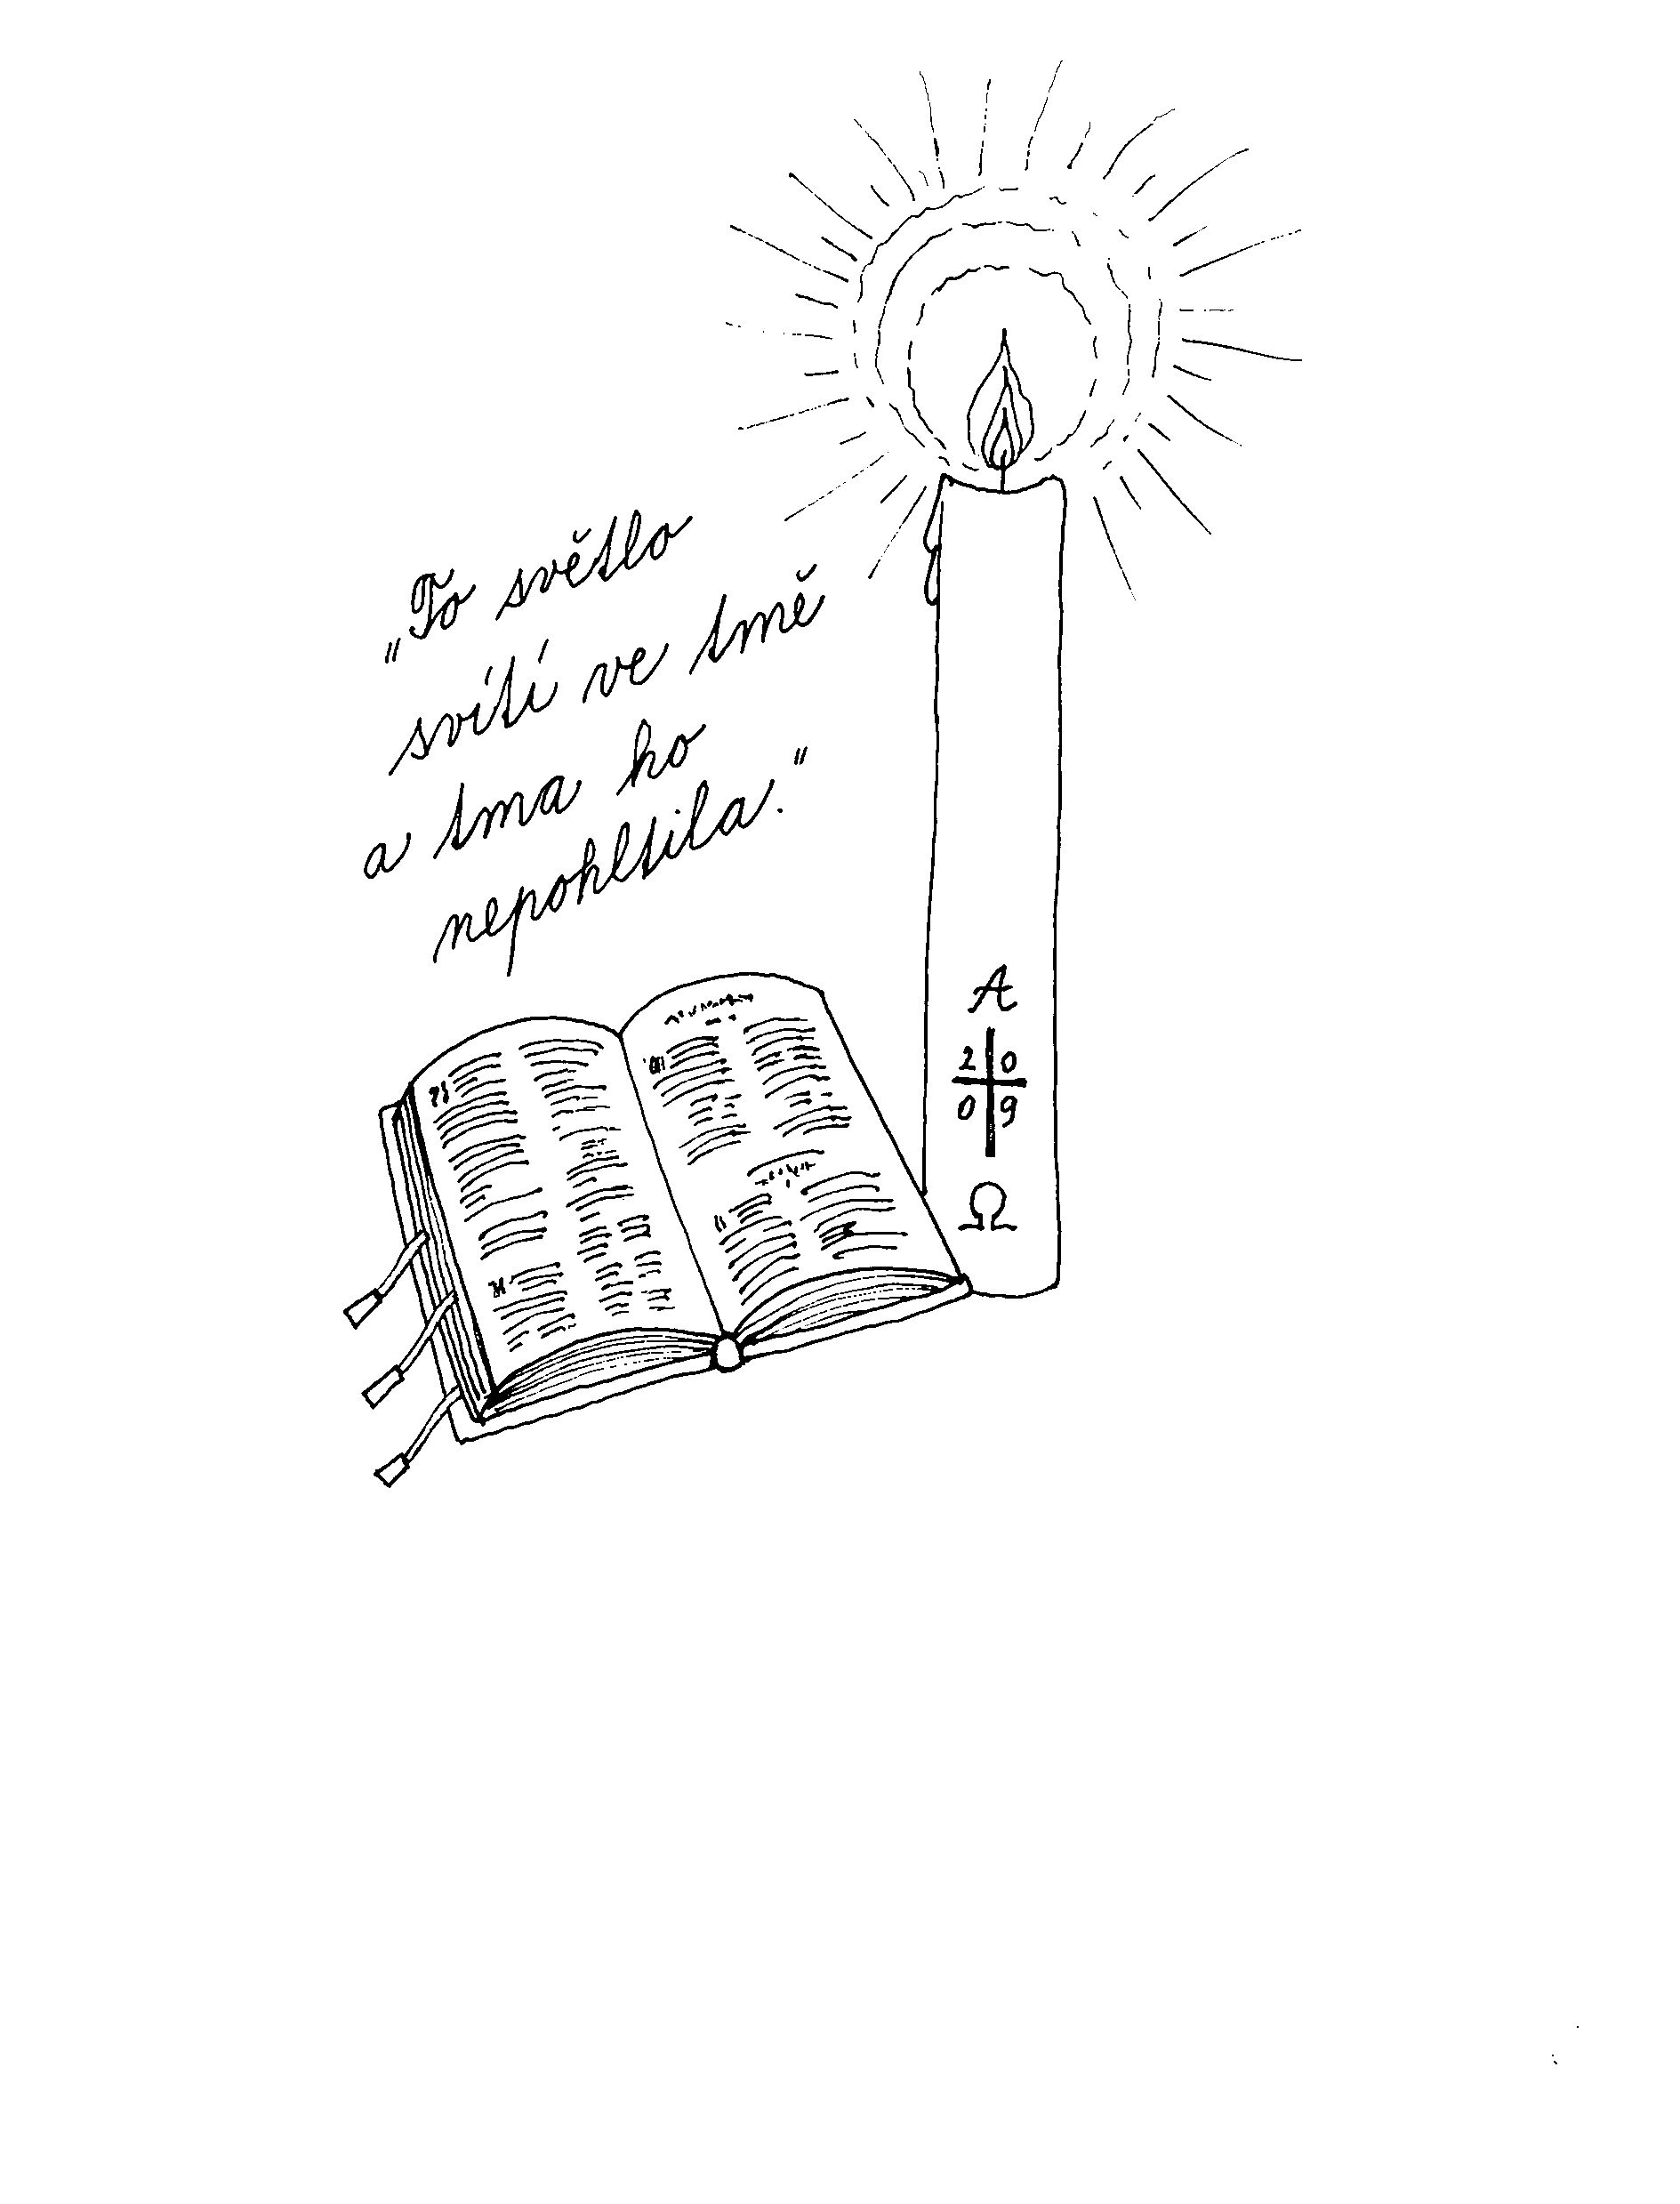 „To světlo
svítí ve tmě
a tma ho
nepohltila."
A
2 0
0 9
Ω